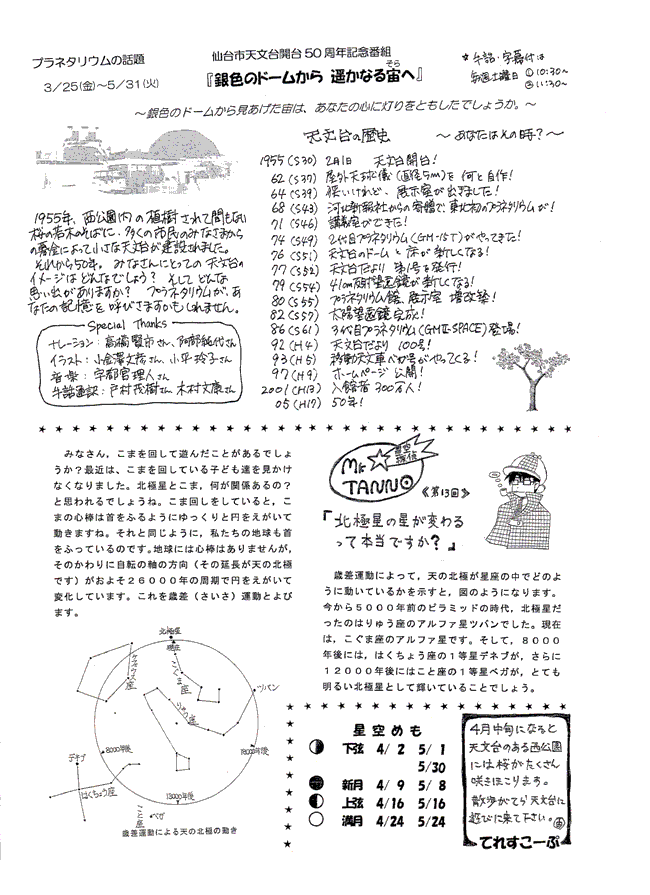 プラネタリウムの話題
3/25(金)~5/31(火)
仙台市天文台開台50周年記念番組
『銀色のドームから 遥かなる宙へ』
そら
*手話・字幕付は
毎週土曜日 ①10:30~
②11:30~
~銀色のドームから見あげた宙は、あなたの心に灯りをともしたでしょうか。~
天文台の歴史 ~あなたはその時?~
1955(S30) 2月1日 天文台開台!
62(S37) 屋外天球儀(直径5m)を何と自作!
64(S39) 狭いけれど、展示室が出きました!
68(S43) 河北新報社からの寄贈で、東北初のプラネタリウムが!
71(S46) 講義室ができた!
74(S49) 2代目プラネタリウム(GM-15T)がやってきた!
76(S51) 天文台のドームと床が新しくなる!
77(S52) 天文台だより 第1号を発行!
79(S54) 41cm反射望遠鏡が新しくなる!
80(S55) プラネタリウム館、展示室 増改築!
82(S57) 太陽望遠鏡完成!
86(S61) 3代目プラネタリウム(GMII-SPACE)登場!
92(H4) 天文台だより 100号!
93(H5) 移動天文車ベガ号がやってくる!
97(H9) ホームページ公開!
2001(H13) 入館者300万人!
05(H17) 50年!
1955年、西公園内の植樹されて間もない
桜の若木のそばに、多くの市民のみなさまから
の寄金によって小さな天文台が建設されました。
それから50年。みなさんにとっての天文台の
イメージはどんなでしょう? そして どんな
思い出がありますか? プラネタリウムが、あ
なたの記憶を呼びさますかもしれません。
Special Thanks
ナレーション:高橋賢市さん、阿部純代さん
イラスト:小会澤文彦さん、小平玲子さん
音楽:宇都宮理人さん
手話通訳:戸村茂樹さん 木村文康さん
みなさん、こまを回して遊んだことがあるでしょ
うか?最近は、こまを回している子ども達を見かけ
なくなりました。北極星とこま、何が関係あるの?
と思われるでしょうね。こま回しをしていると、こ
まの心棒は首をふるようにゆっくりと円をえがいて
動きますね。それと同じように、私たちの地球も首
をふっているのです。地球には心棒はありませんが、
そのかわりに自転の軸の方向(その延長が天の北極
です)がおよそ26000年の周期で円をえがいて
変化しています。これを歳差(さいさ)運動とよび
ます。
Mr
TANNO
星空
探偵
《第13回》
「北極星の星が変わる
って本当ですか?」
歳差運動によって、天の北極が星座の中でどのよ
うに動いているかを示すと、図のようになります。
今から5000年前のピラミッドの時代、北極星だ
ったのはりゅう座のアルファ星ツバンでした。現在
は、こぐま座のアルファ星です。そして、8000
年後には、はくちょう座の1等星デネブが、さらに
12000年後にはこと座の1等星ベガが、とても
明るい北極星として輝いていることでしょう。
北極星
現在
ケフェウス座
こぐま座
ツバン
りゅう座
8000年後
18000年後
デネブ
はくちょう座
13000年後
こと座
ベガ
歳差運動による天の北極の動き
星空めも
下弦 4/2 5/1
5/30
新月 4/9 5/8
上弦 4/16 5/16
満月 4/24 5/24
4月中旬になると
天文台のある西公園
には桜がたくさん
咲きほこります。
散歩がてら天文台に
遊びに来て下さい。
てれすこーぷ